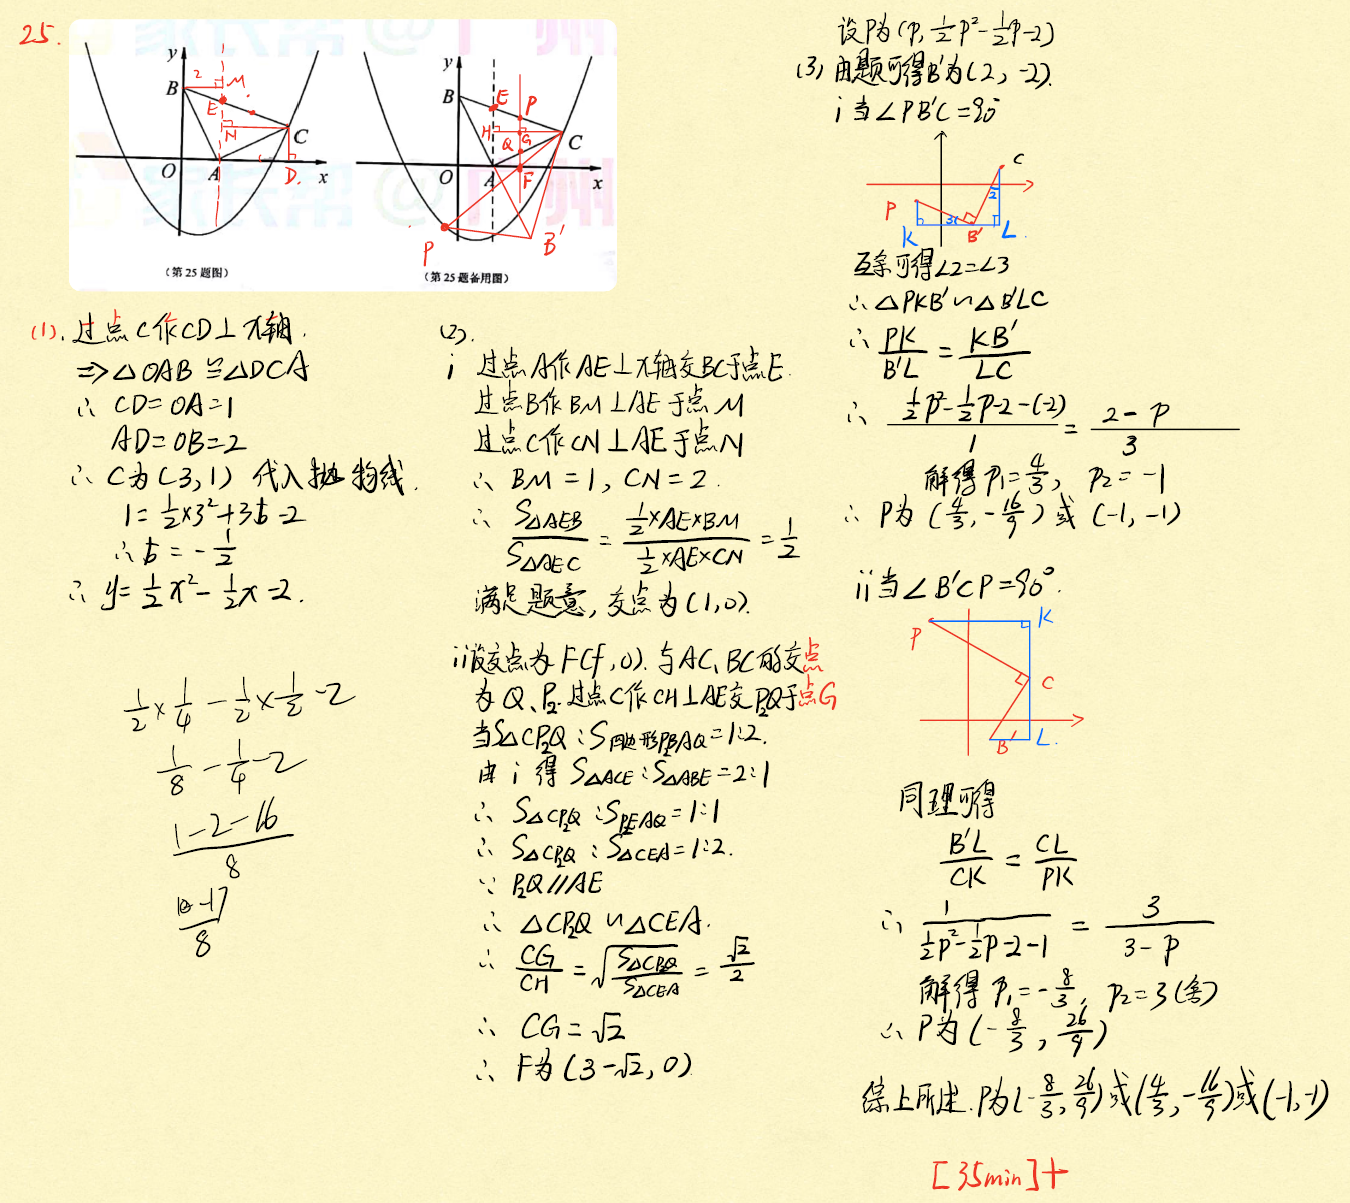 25.
y
B
2
M
E
N
C
O
A
D.
x
(第25题图)
y
B
E
P
H
Q
G
C
O
A
F
x
P
B'
(第25题备用图)
(1). 过点C作CD⊥x轴.
=> △OAB ≌ △DCA
∴ CD=OA=1
AD=OB=2
∴ C为(3,1) 代入抛物线.
1=1/2×3²+3b-2
∴ b=-1/2
∴ y=1/2x²-1/2x-2.
1/2×1/4-1/2×1/2-2
1/8-1/4-2
(1-2-16)/8
-17/8
(2).
i 过点A作AE⊥x轴交BC于点E.
过点B作BM⊥AE于点M
过点C作CN⊥AE于点N
∴ BM=1, CN=2.
∴ S△AEB/S△AEC = (1/2×AE×BM)/(1/2×AE×CN) = 1/2
满足题意, 交点为(1,0).
ii设交点为F(f,0). 与AC、BC的交点
为Q、P₂. 过点C作CH⊥AE交P₂Q于点G
当S△CP₂Q:S四边形P₂BAQ=1:2.
由i得S△ACE:S△ABE=2:1
∴ S△CP₂Q:SP₂EAQ=1:1
∴ S△CP₂Q:S△CEA=1:2.
∵ P₂Q//AE
∴ △CP₂Q∽△CEA.
∴ CG/CH=√(S△CP₂Q/S△CEA)=√2/2
∴ CG=√2
∴ F为(3-√2,0)
设P为(P, 1/2P²-1/2P-2)
(3) 由题可得B'为(2,-2).
i 当∠PB'C=90°
C
P
2
3
K
B'
L
互余可得∠2=∠3
∴ △PKB'∽△B'LC
∴ PK/B'L=KB'/LC
∴ (1/2P²-1/2P-2-(-2))/1=(2-P)/3
解得P₁=4/3, P₂=-1
∴ P为(4/3,-16/9)或(-1,-1)
ii当∠B'CP=90°.
P
K
C
B'
L
同理可得
B'L/CK=CL/PK
∴ 1/(1/2P²-1/2P-2-1)=3/(3-P)
解得P₁=-8/3, P₂=3(舍)
∴ P为(-8/3,26/9)
综上所述.P为(-8/3,26/9)或(4/3,-16/9)或(-1,-1)
[35min]+